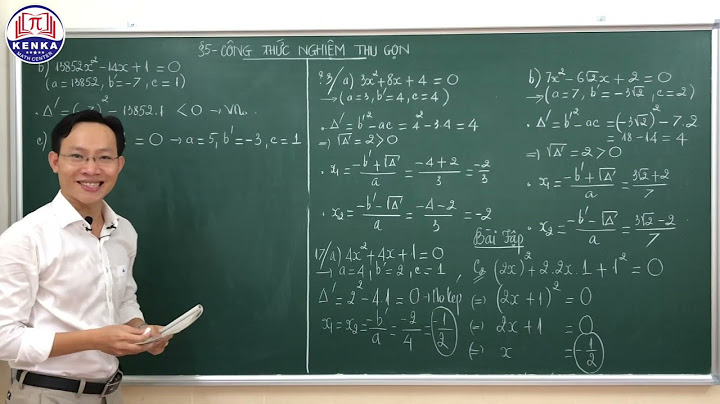 KENKA
MATH CENTER
§5-CÔNG THỨC NGHIỆM THU GỌN
b) 13852x² - 14x + 1 = 0
(a = 13852, b' = -7, c = 1)
Δ' = (-7)² - 13852.1 < 0 → VN.
c) = 0 → a = 5, b' = -3, c = 1
?3/ a) 3x² + 8x + 4 = 0
→ (a = 3, b' = 4, c = 4)
. Δ' = b'² - ac = 4² - 3.4 = 4
⇒ √Δ' = 2 > 0
. x₁ = (-b' + √Δ')/a = (-4 + 2)/3 = -2/3
. x₂ = (-b' - √Δ')/a = (-4 - 2)/3 = -2
b) 7x² - 6√2x + 2 = 0
→ (a = 7, b' = -3√2, c = 2)
. Δ' = b'² - ac = (-3√2)² - 7.2
= 18 - 14 = 4
⇒ √Δ' = 2 > 0
. x₁ = (-b' + √Δ')/a = (3√2 + 2)/7
. x₂ = (-b' - √Δ')/a = (3√2 - 2)/7
Bài Tập
17/ a) 4x² + 4x + 1 = 0
→ a = 4, b' = 2, c = 1
Δ' = 2² - 4.1 = 0 → No kép
x₁ = x₂ = -b'/a = -2/4 = -1/2
C₂ (2x)² + 2.2x.1 + 1² = 0
(=) (2x + 1)² = 0
(=) 2x + 1 = 0
(=) x = -1/2